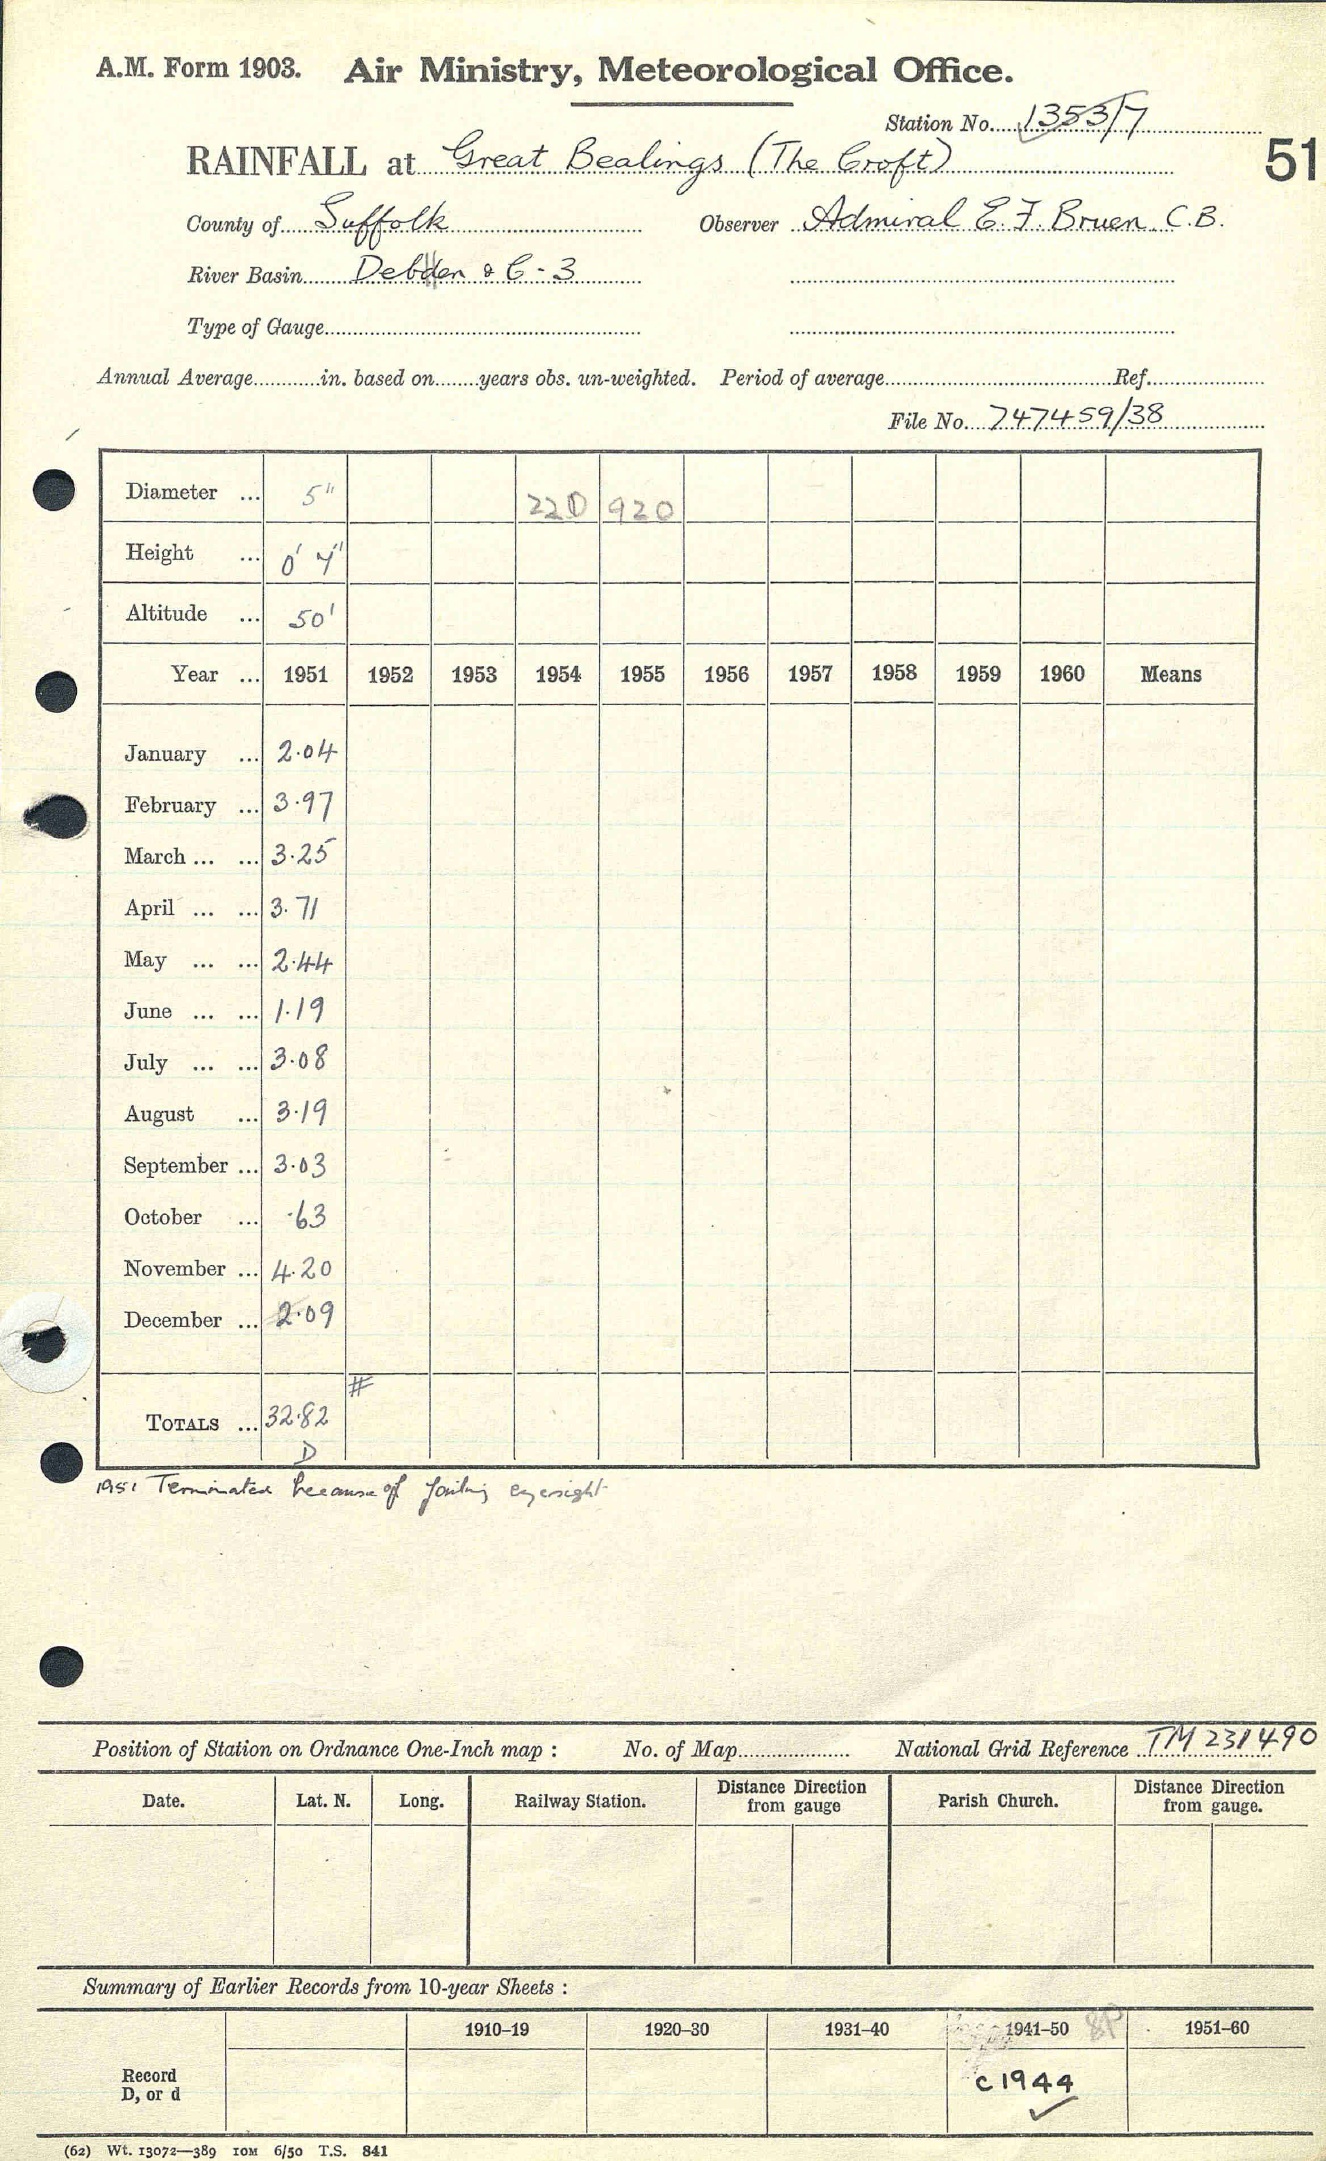 A.M. Form 1903. Air Ministry, Meteorological Office.
Station No. 1353/7
51
RAINFALL at Great Bealings (The Croft)
County of Suffolk Observer Admiral E. F. Bruen. C.B.
River Basin Debden & C-3
Type of Gauge
Annual Average in. based on years obs. un-weighted. Period of average Ref.
File No. 747459/38
Diameter ... 5" 22D 920
Height ... 0'
Altitude ... 50'
Year ... 1951 1952 1953 1954 1955 1956 1957 1958 1959 1960 Means
January ... 2.04
February ... 3.97
March ... ... 3.25
April ... ... 3.71
May ... ... 2.44
June ... ... 1.19
July ... ... 3.08
August ... 3.19
September ... 3.03
October ... .63
November ... 4.20
December ... 2.09
#
TOTALS ... 32.82
D
1951 Terminated because of failing eyesight
Position of Station on Ordnance One-Inch map : No. of Map National Grid Reference TM 231490
Date. Lat. N. Long. Railway Station. Distance from gauge Direction Parish Church. Distance from gauge. Direction
Summary of Earlier Records from 10-year Sheets :
1910–19 1920–30 1931–40 1941–50 1951–60
Record D, or d c 1944
(62) Wt. 13072—389 10M 6/50 T.S. 841